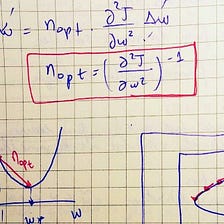 = ηopt · ∂²J/∂w² Δw
ηopt = (∂²J/∂w²)⁻¹
ηopt
w* w